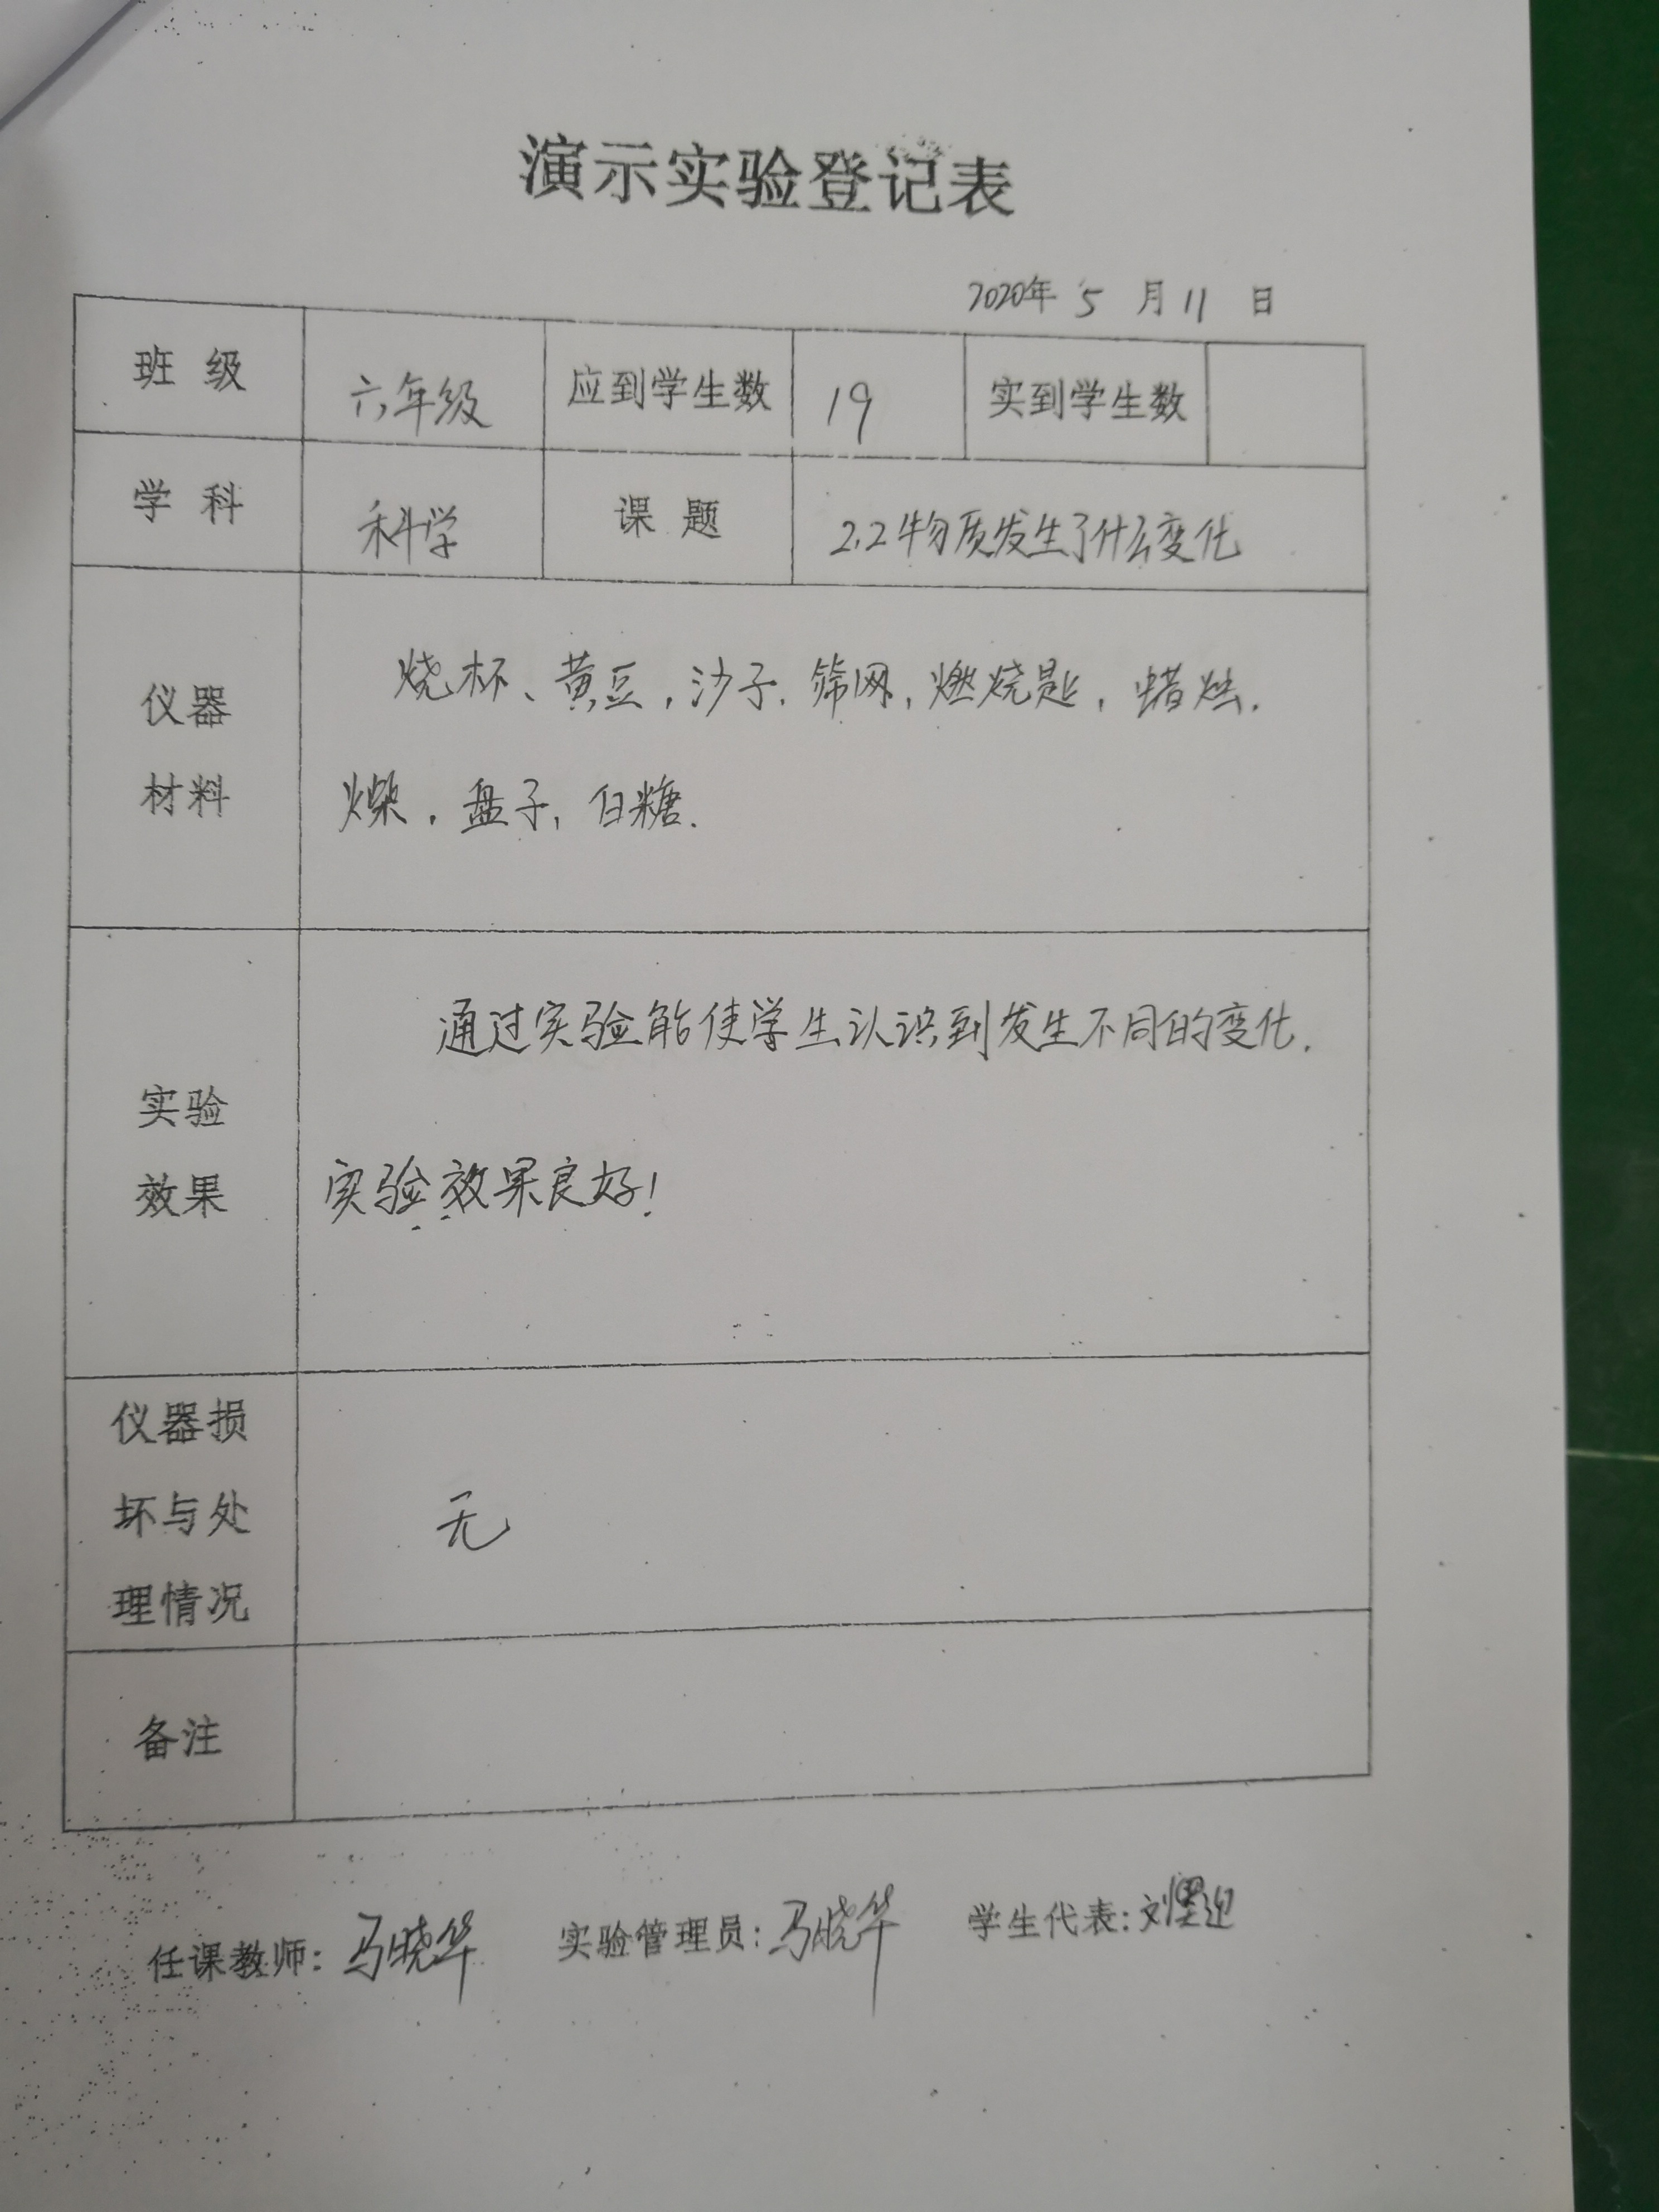 演示实验登记表
2020年 5 月 11 日
班级 六年级 应到学生数 19 实到学生数
学科 科学 课题 2.2物质发生了什么变化
仪器材料
烧杯、黄豆,沙子.筛网,燃烧匙,蜡烛.
盘子,白糖.
实验效果
通过实验能使学生认识到发生不同的变化.
实验效果良好!
仪器损坏与处理情况
无
备注
任课教师: 马晓华 实验管理员: 马晓华 学生代表: 刘